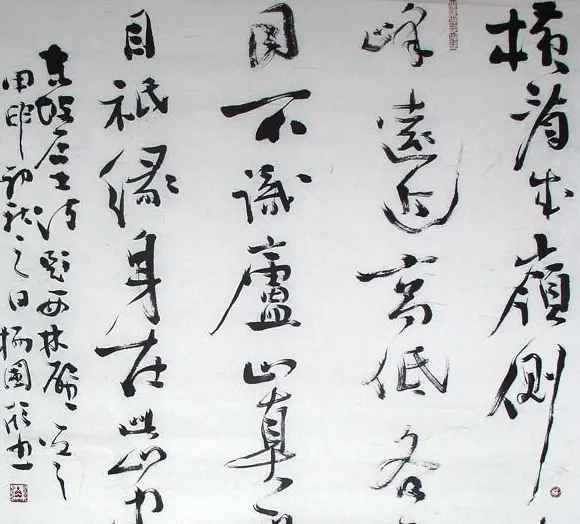 橫看成嶺側
峰遠近高低各
同不識廬山真
目祇緣身在此山中
東坡居士詩題西林壁
甲申初秋之日